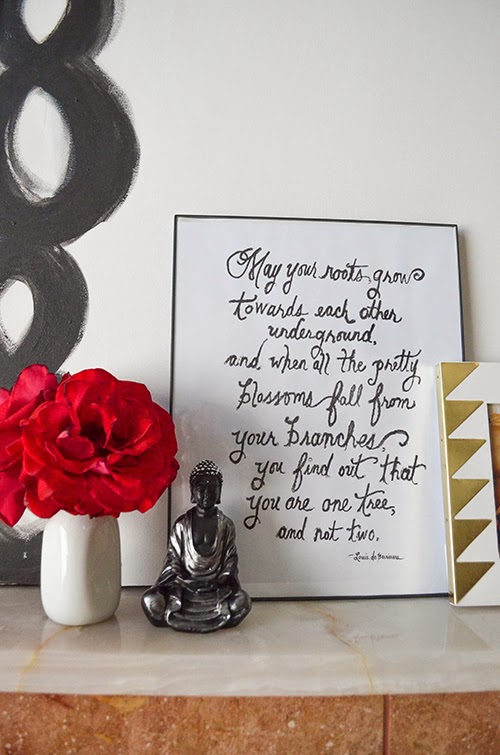 May your roots grow
towards each other
underground,
and when all the pretty
blossoms fall from
your branches,
you find out that
you are one tree,
and not two.
-Louis de Bernieres